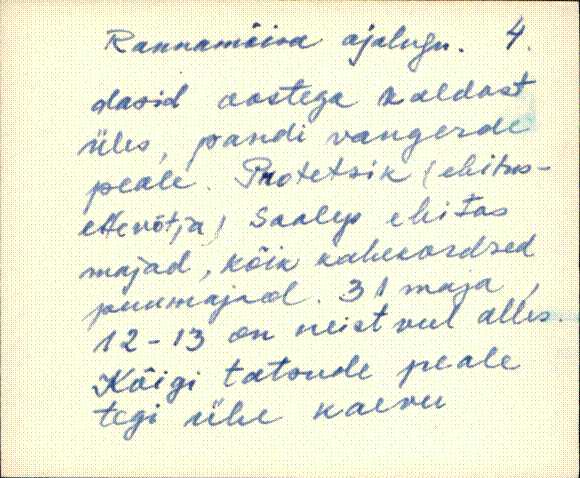 Rannamõisa ajalugu. 4.
dasid vostega kaldast
üles, pandi vangerde
peale. Protetsik (ehitus-
ettevõtja) Saalep ehitas
majad, kõik kahekordsed
puumajad. 31 maja,
12-13 on neist veel alles.
Kõigi tatsude peale
tegi ühe kaevu